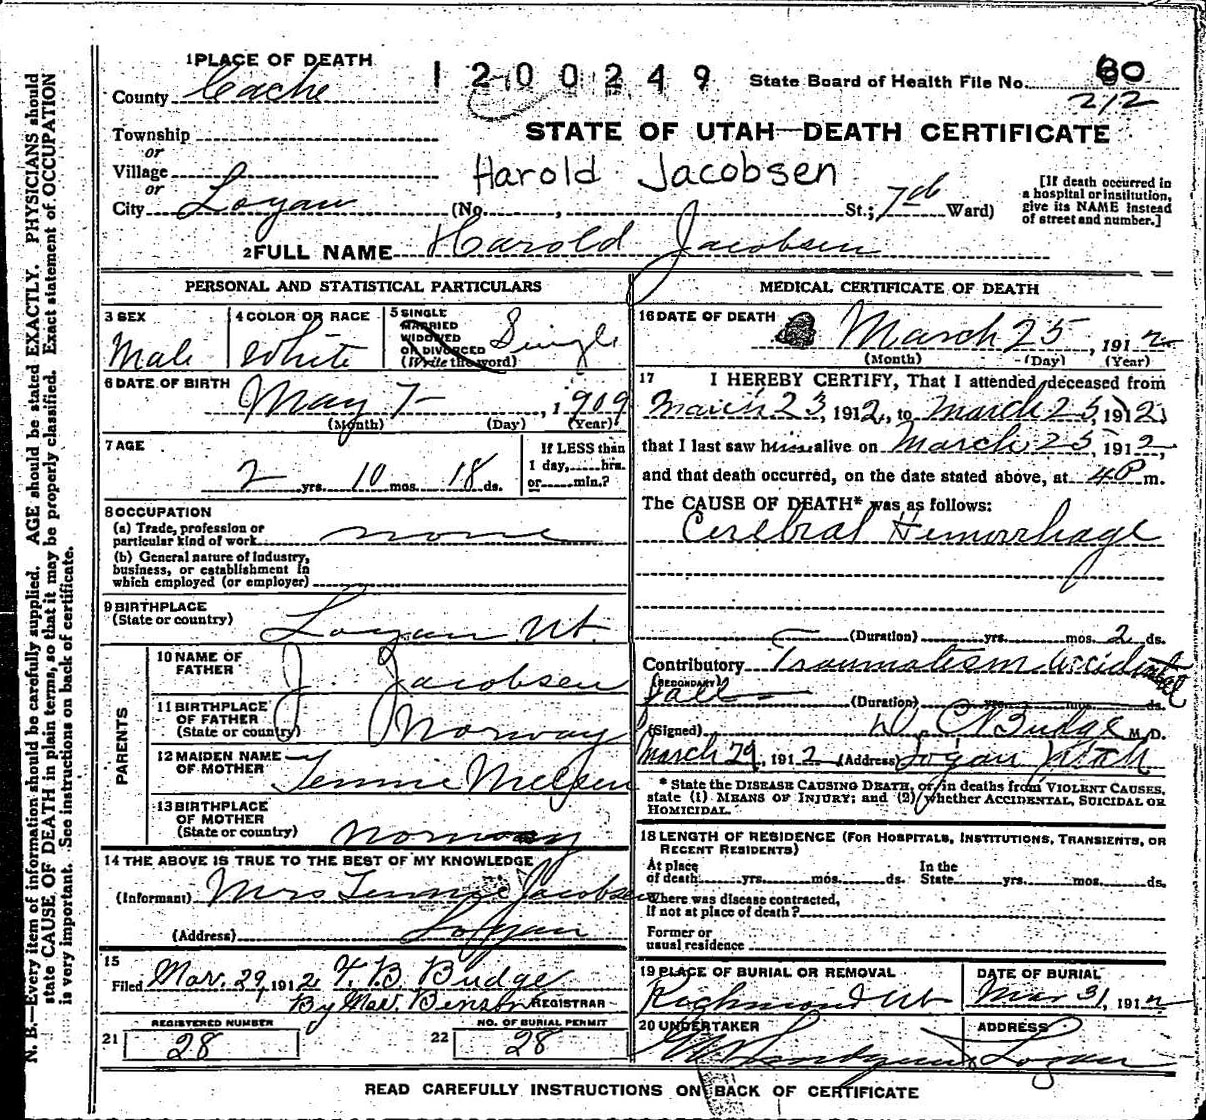 1 PLACE OF DEATH
1200249
State Board of Health File No. 60
212
County Cache
Township
or
Village
or
City Logan
STATE OF UTAH—DEATH CERTIFICATE
Harold Jacobsen
(No. , St.; 7th Ward)
[If death occurred in
a hospital or institution,
give its NAME instead
of street and number.]
2 FULL NAME Harold Jacobsen
PERSONAL AND STATISTICAL PARTICULARS
3 SEX
Male
4 COLOR OR RACE
White
5 SINGLE
MARRIED
WIDOWED
OR DIVORCED
(Write the word)
Single
6 DATE OF BIRTH
May 7 , 1909
(Month) (Day) (Year)
7 AGE
2 yrs. 10 mos. 18 ds.
If LESS than
1 day, hrs.
or min.?
8 OCCUPATION
(a) Trade, profession or
particular kind of work none
(b) General nature of Industry,
business, or establishment in
which employed (or employer)
9 BIRTHPLACE
(State or country)
Logan Ut.
PARENTS
10 NAME OF
FATHER
J. Jacobsen
11 BIRTHPLACE
OF FATHER
(State or country)
Norway
12 MAIDEN NAME
OF MOTHER
Tennie Nielsen
13 BIRTHPLACE
OF MOTHER
(State or country)
Norway
14 THE ABOVE IS TRUE TO THE BEST OF MY KNOWLEDGE
(Informant) Mrs Tennie Jacobsen
(Address) Logan
15
Filed Mar. 29, 1912 F. B. Budge
By Benson REGISTRAR
REGISTERED NUMBER
21 28
NO. OF BURIAL PERMIT
22 28
MEDICAL CERTIFICATE OF DEATH
16 DATE OF DEATH
March 25 , 1912
(Month) (Day) (Year)
17 I HEREBY CERTIFY, That I attended deceased from
March 23, 1912, to March 25, 1912,
that I last saw him alive on March 25, 1912,
and that death occurred, on the date stated above, at 4 P m.
The CAUSE OF DEATH* was as follows:
Cerebral Hemorrhage
(Duration) yrs. mos. 2 ds.
Contributory Traumatism accidental
(SECONDARY)
fall
(Duration) yrs. mos. ds.
(Signed) D. C. Budge M. D.
March 29, 1912 (Address) Logan Utah
* State the DISEASE CAUSING DEATH, or, in deaths from VIOLENT CAUSES,
state (1) MEANS OF INJURY; and (2) whether ACCIDENTAL, SUICIDAL OR
HOMICIDAL.
18 LENGTH OF RESIDENCE (FOR HOSPITALS, INSTITUTIONS, TRANSIENTS, OR
RECENT RESIDENTS)
At place
of death yrs. mos. ds.
In the
State yrs. mos. ds.
Where was disease contracted,
if not at place of death?
Former or
usual residence
19 PLACE OF BURIAL OR REMOVAL
Richmond Ut
DATE OF BURIAL
Mar 31, 1912
20 UNDERTAKER
ADDRESS
Logan
READ CAREFULLY INSTRUCTIONS ON BACK OF CERTIFICATE
N. B.—Every item of information should be carefully supplied. AGE should be stated EXACTLY. PHYSICIANS should
state CAUSE OF DEATH in plain terms, so that it may be properly classified. Exact statement of OCCUPATION
is very important. See instructions on back of certificate.